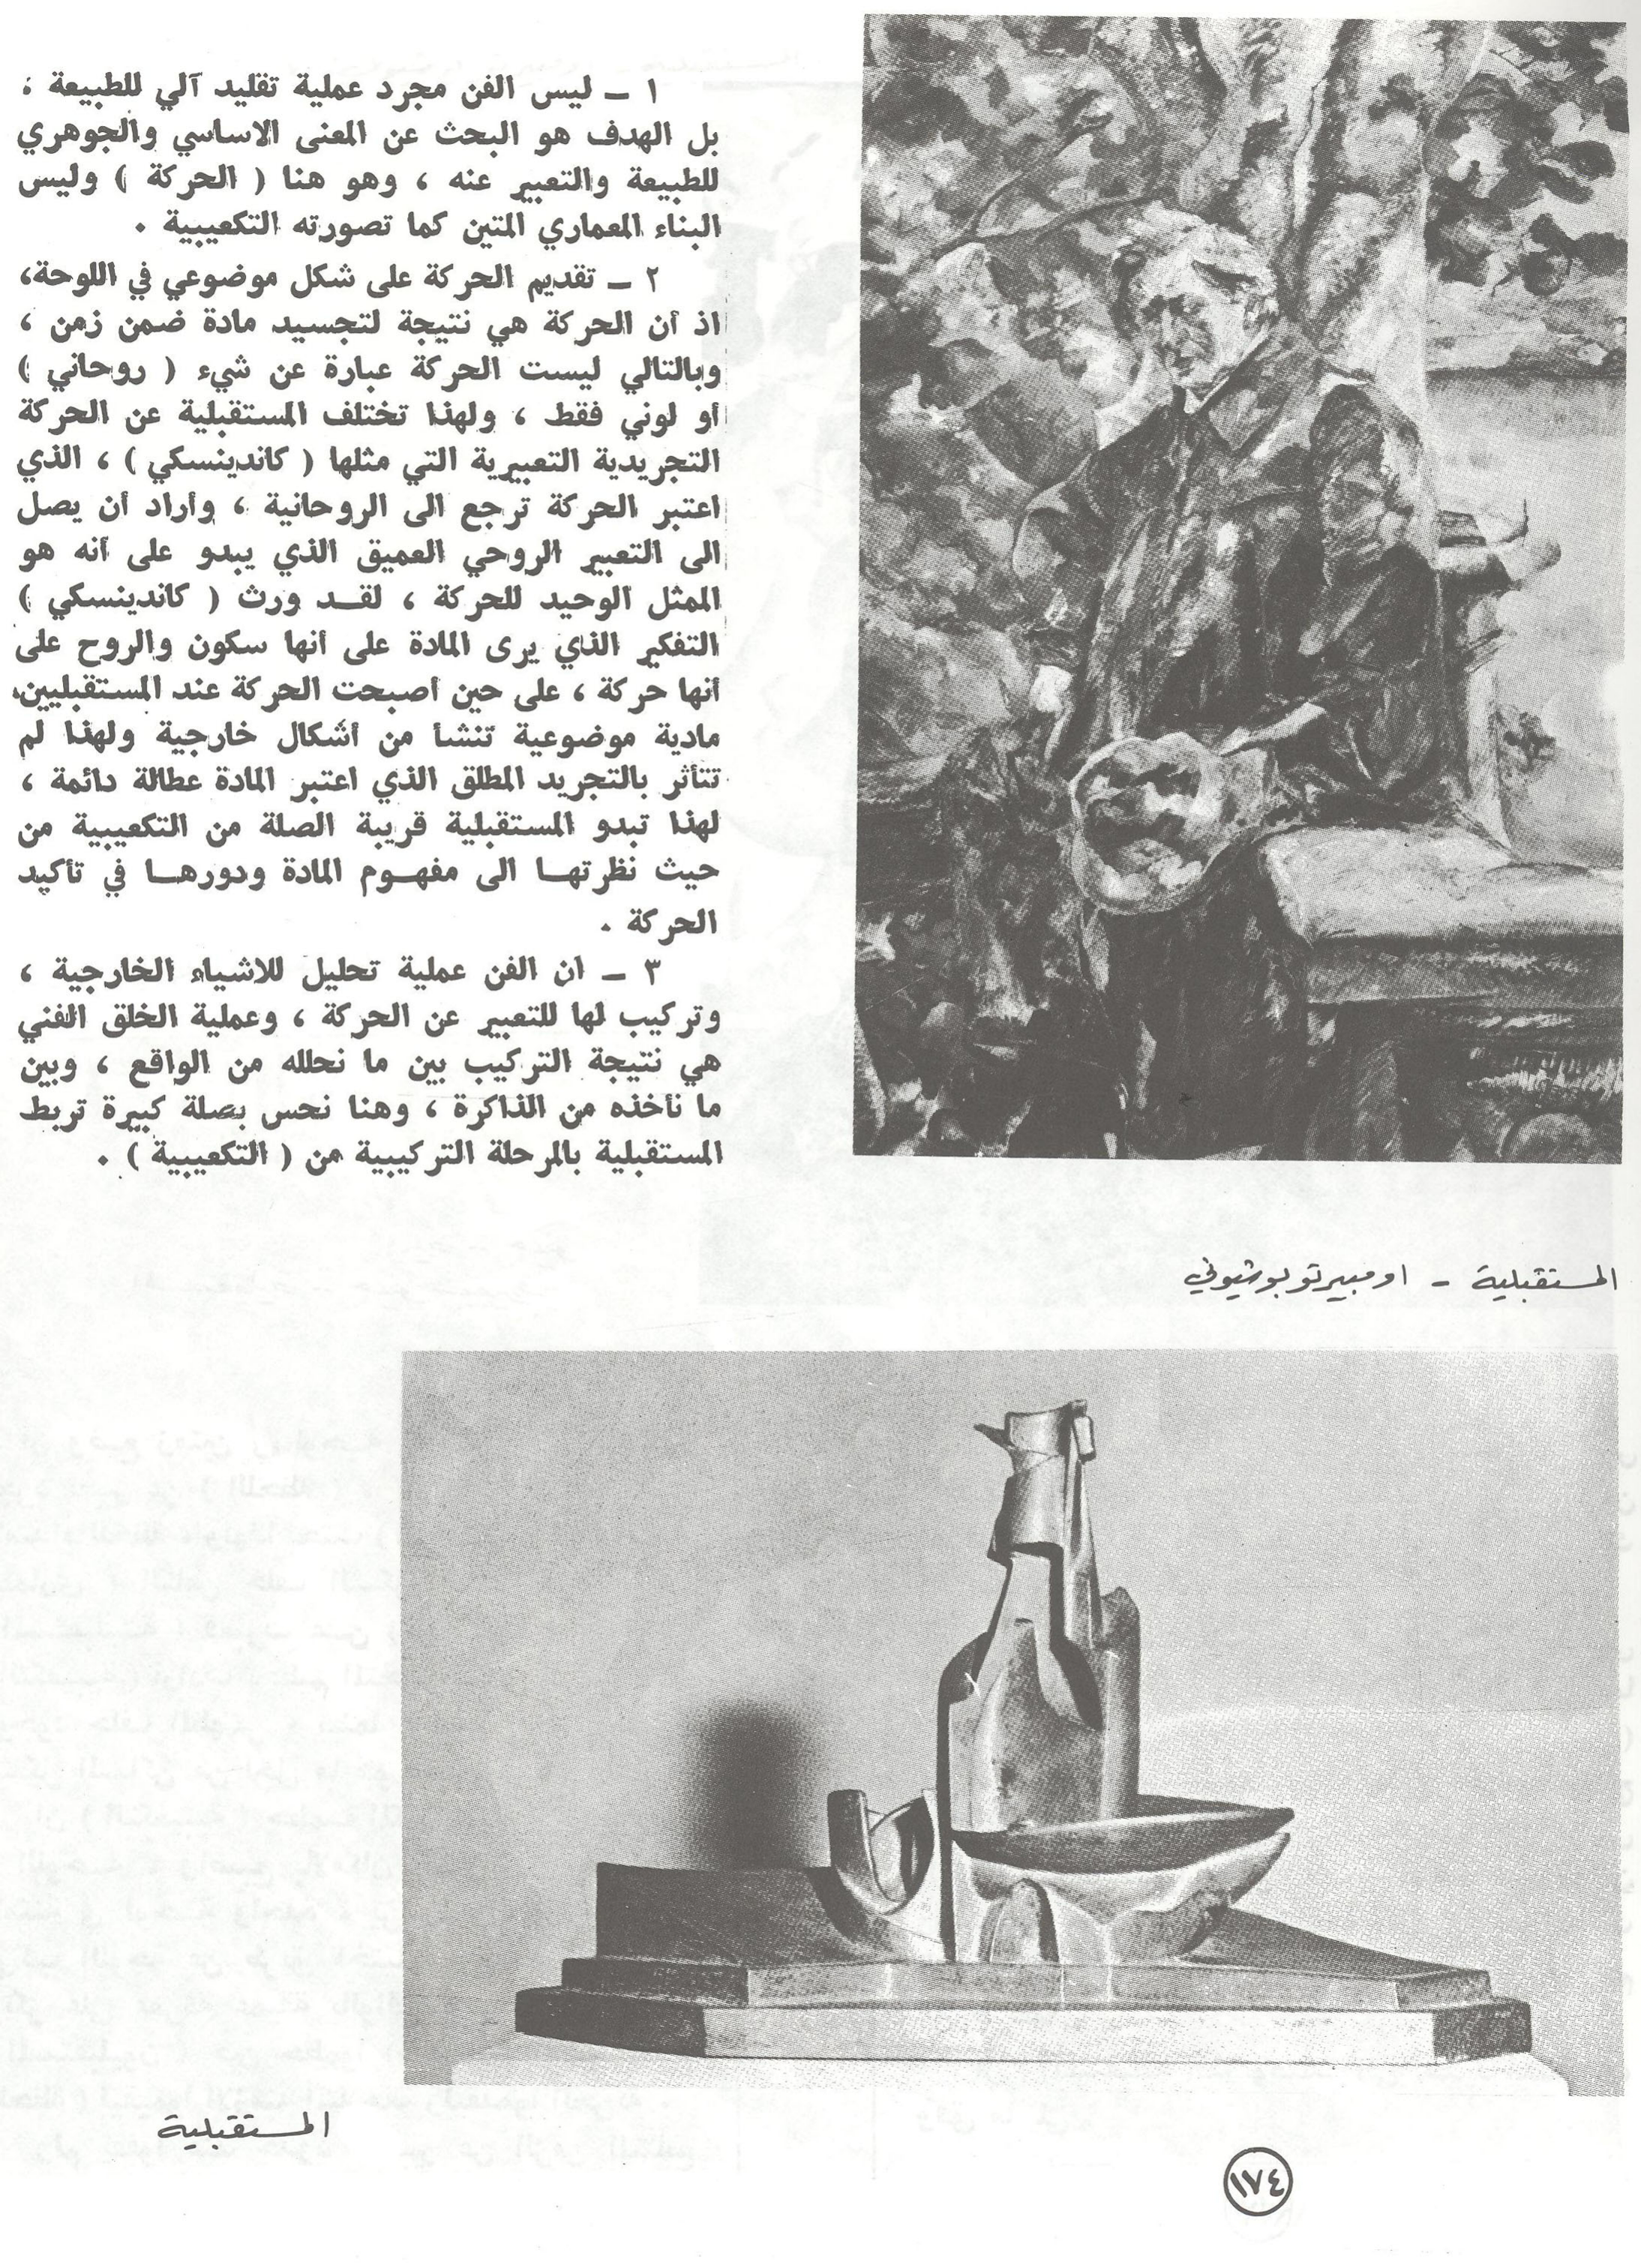 ١ ــ ليس الفن مجرد عملية تقليد آلي للطبيعة ،
بل الهدف هو البحث عن المعنى الاساسي والجوهري
للطبيعة والتعبير عنه ، وهو هنا ( الحركة ) وليس
البناء المعماري المتين كما تصورته التكعيبية .
٢ ــ تقديم الحركة على شكل موضوعي في اللوحة،
اذ أن الحركة هي نتيجة لتجسيد مادة ضمن زمن ،
وبالتالي ليست الحركة عبارة عن شيء ( روحاني )
أو لوني فقط ، ولهذا تختلف المستقبلية عن الحركة
التجريدية التعبيرية التي مثلها ( كاندينسكي ) ، الذي
اعتبر الحركة ترجع الى الروحانية ، وأراد أن يصل
الى التعبير الروحي العميق الذي يبدو على أنه هو
الممثل الوحيد للحركة ، لقــد ورث ( كاندينسكي )
التفكير الذي يرى المادة على أنها سكون والروح على
أنها حركة ، على حين أصبحت الحركة عند المستقبليين،
مادية موضوعية تنشأ من أشكال خارجية ولهذا لم
تتأثر بالتجريد المطلق الذي اعتبر المادة عطالة دائمة ،
لهذا تبدو المستقبلية قريبة الصلة من التكعيبية من
حيث نظرتهــا الى مفهــوم المادة ودورهــا في تأكيد
الحركة .
٣ ــ ان الفن عملية تحليل للاشياء الخارجية ،
وتركيب لها للتعبير عن الحركة ، وعملية الخلق الفني
هي نتيجة التركيب بين ما نحلله من الواقع ، وبين
ما نأخذه من الذاكرة ، وهنا نحس بصلة كبيرة تربط
المستقبلية بالمرحلة التركيبية من ( التكعيبية ) .
المستقبلية - اومبيرتو بوشيوني
المستقبلية
١٧٤